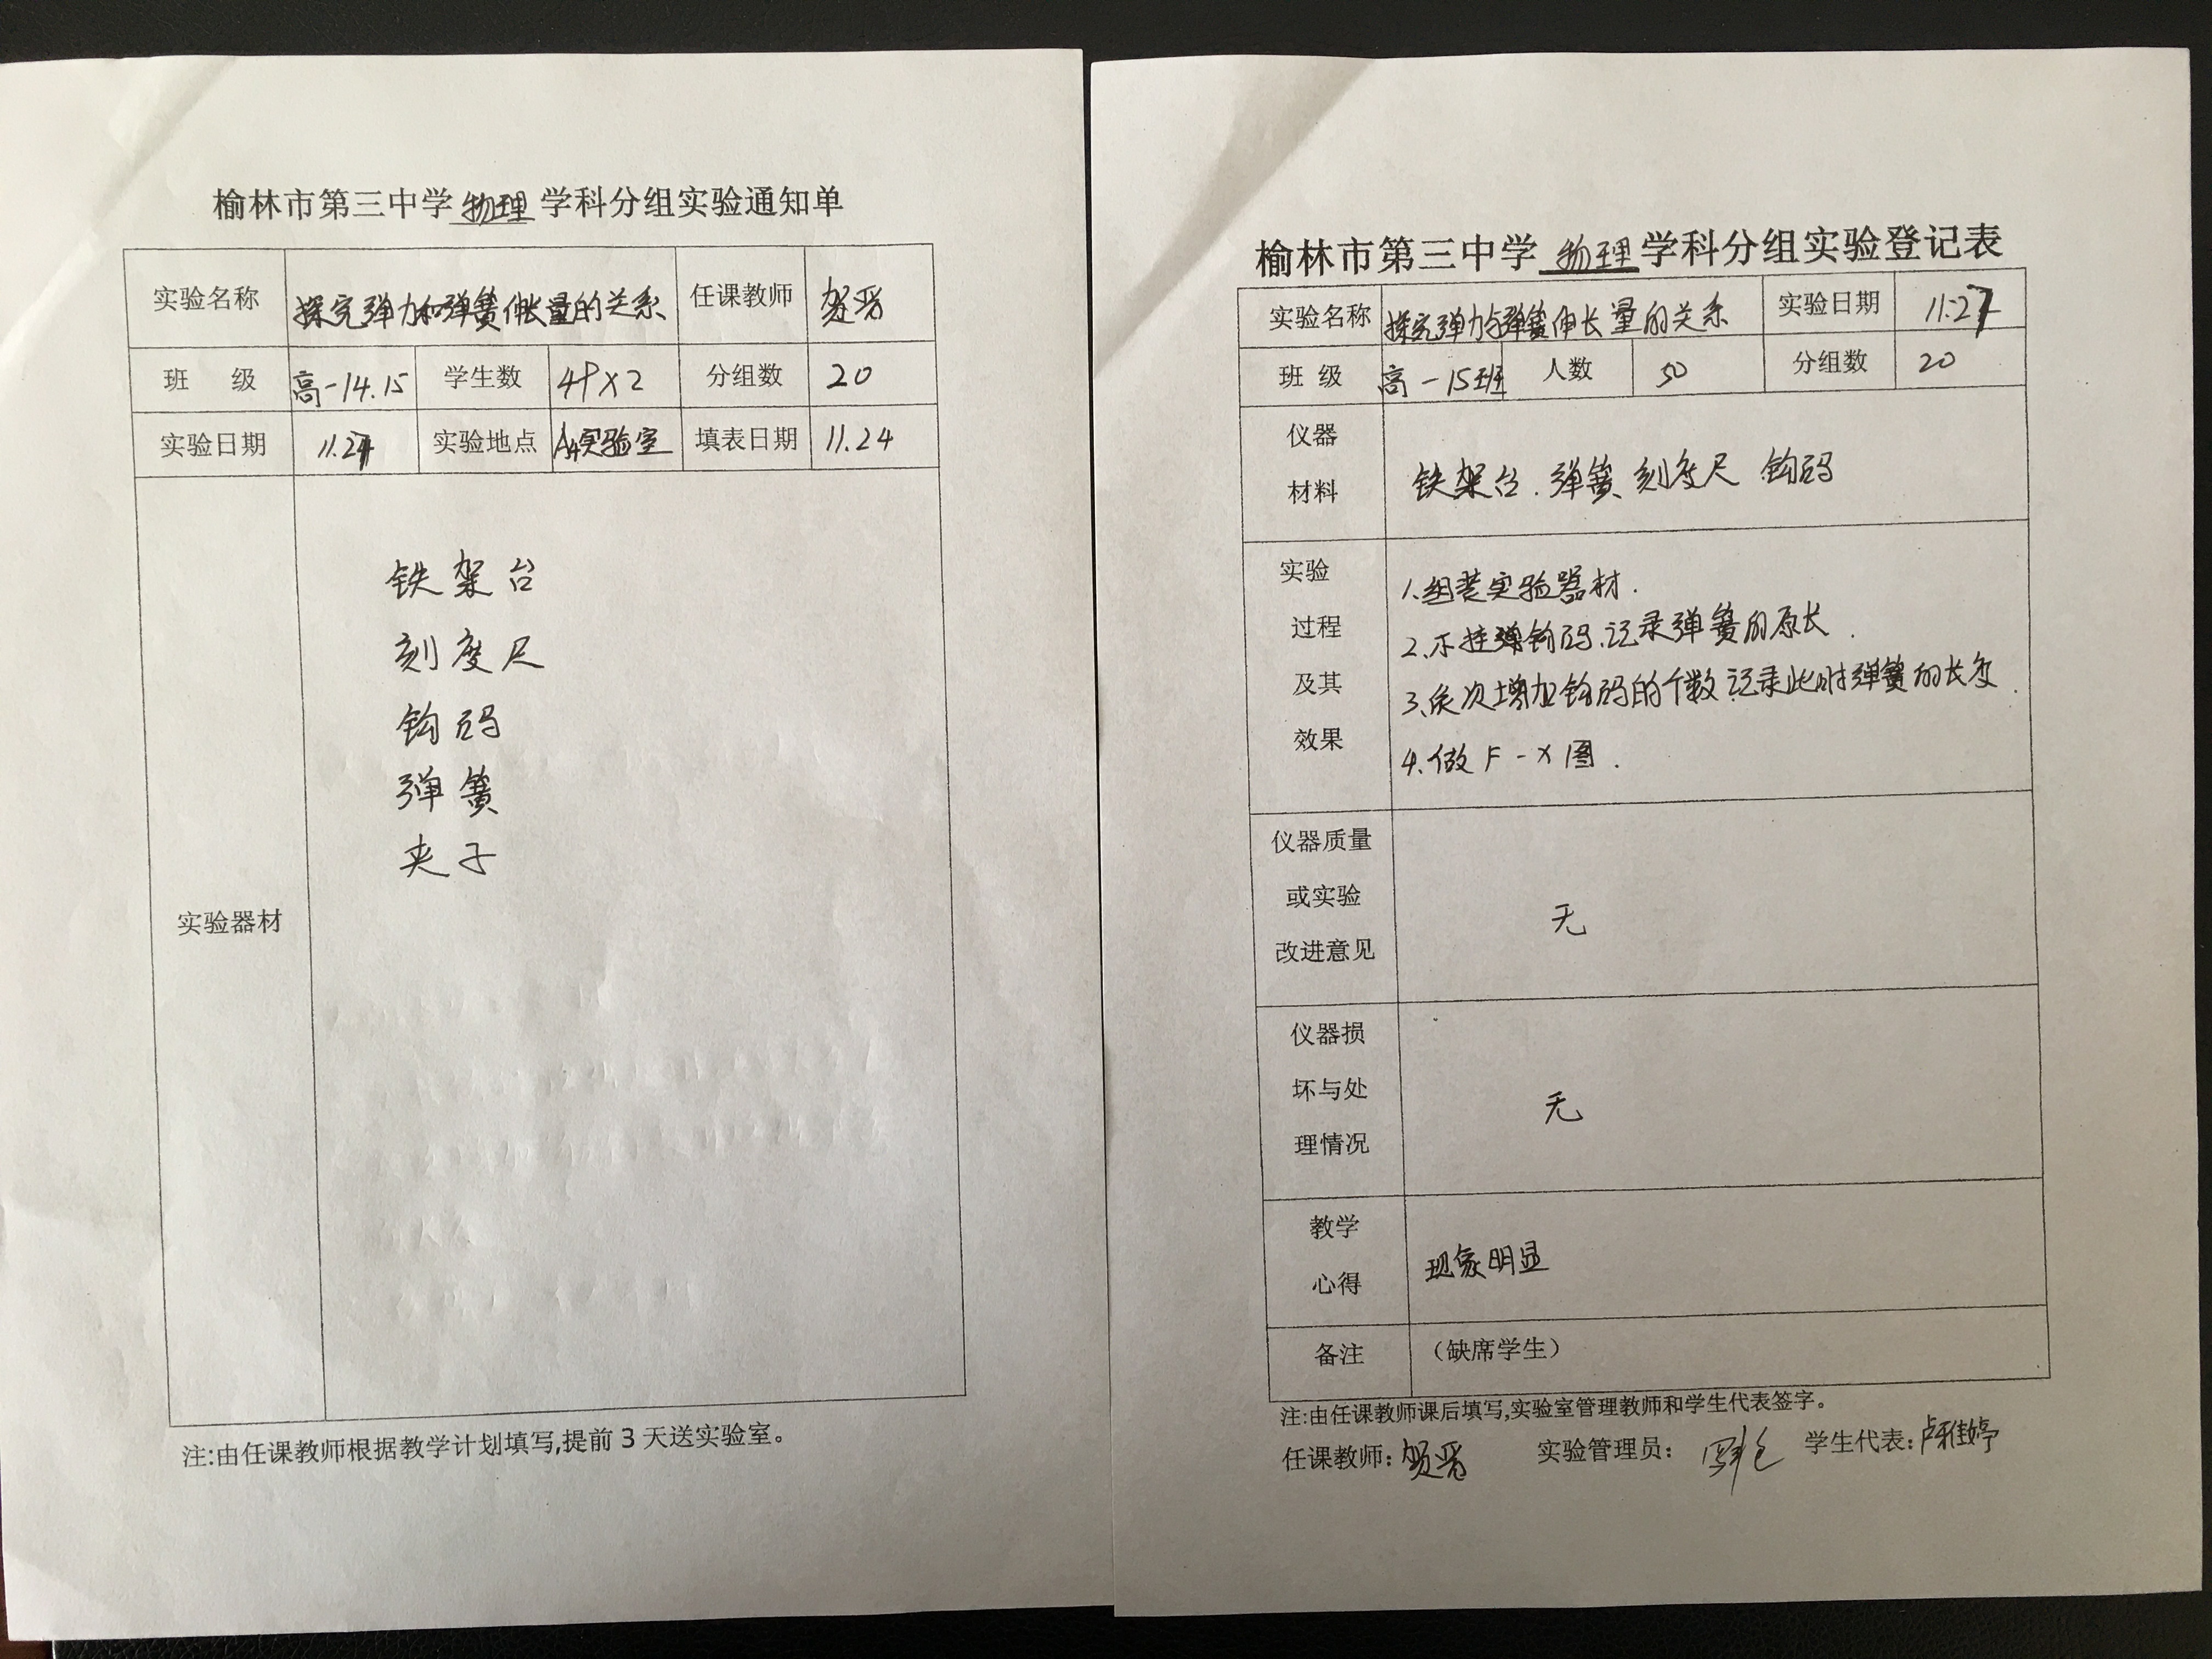 榆林市第三中学 物理 学科分组实验通知单
实验名称 探究弹力和弹簧伸长量的关系 任课教师 贺晋
班 级 高一14.15 学生数 49×2 分组数 20
实验日期 11.27 实验地点 A4实验室 填表日期 11.24
铁架台
刻度尺
钩码
弹簧
夹子
实验器材
注:由任课教师根据教学计划填写,提前3天送实验室。
榆林市第三中学 物理 学科分组实验登记表
实验名称 探究弹力与弹簧伸长量的关系 实验日期 11.27
班 级 高一15班 人数 50 分组数 20
仪器
材料
铁架台.弹簧、刻度尺.钩码
实验
过程
及其
效果
1.组装实验器材.
2.不挂钩码.记录弹簧的原长.
3.依次增加钩码的个数.记录此时弹簧的长度.
4.做F-x图.
仪器质量
或实验
改进意见
无
仪器损
坏与处
理情况
无
教学
心得
现象明显
备注 (缺席学生)
注:由任课教师课后填写,实验室管理教师和学生代表签字。
任课教师:贺晋 实验管理员: 学生代表:卢雅婷